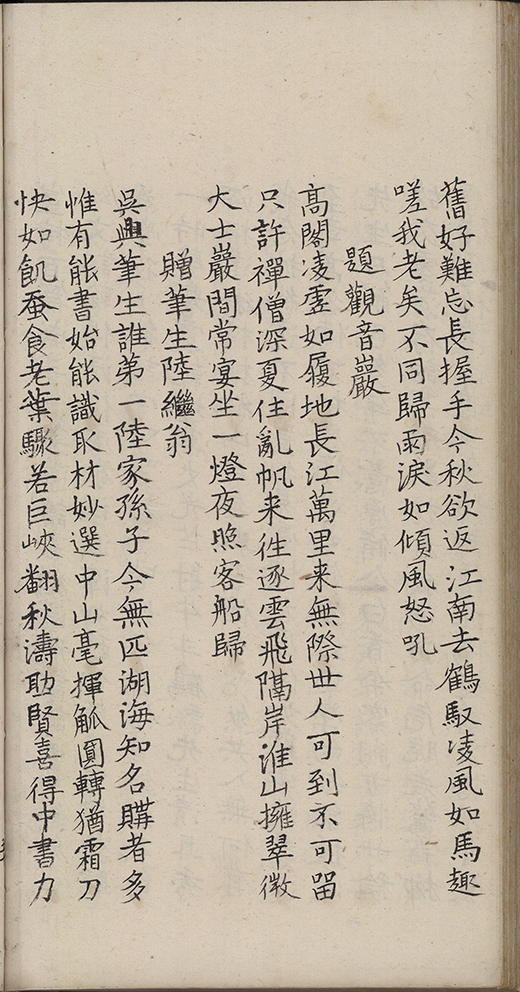 舊好難忘長握手今秋欲返江南去鶴馭凌風如馬趣
嗟我老矣不同歸雨淚如傾風怒吼
題觀音巖
高閣凌虛如履地長江萬里来無際世人可到不可留
只許禪僧深夏住亂帆来徃逐雲飛隔岸淮山擁翠微
大士巖間常宴坐一燈夜照客船歸
贈筆生陸繼翁
吳興筆生誰弟一陸家孫子今無匹湖海知名購者多
惟有能書始能識取材妙選中山毫揮觚圓轉猶霜刀
快如飢蚕食老葉驟若巨峽翻秋濤助賢喜得中書力